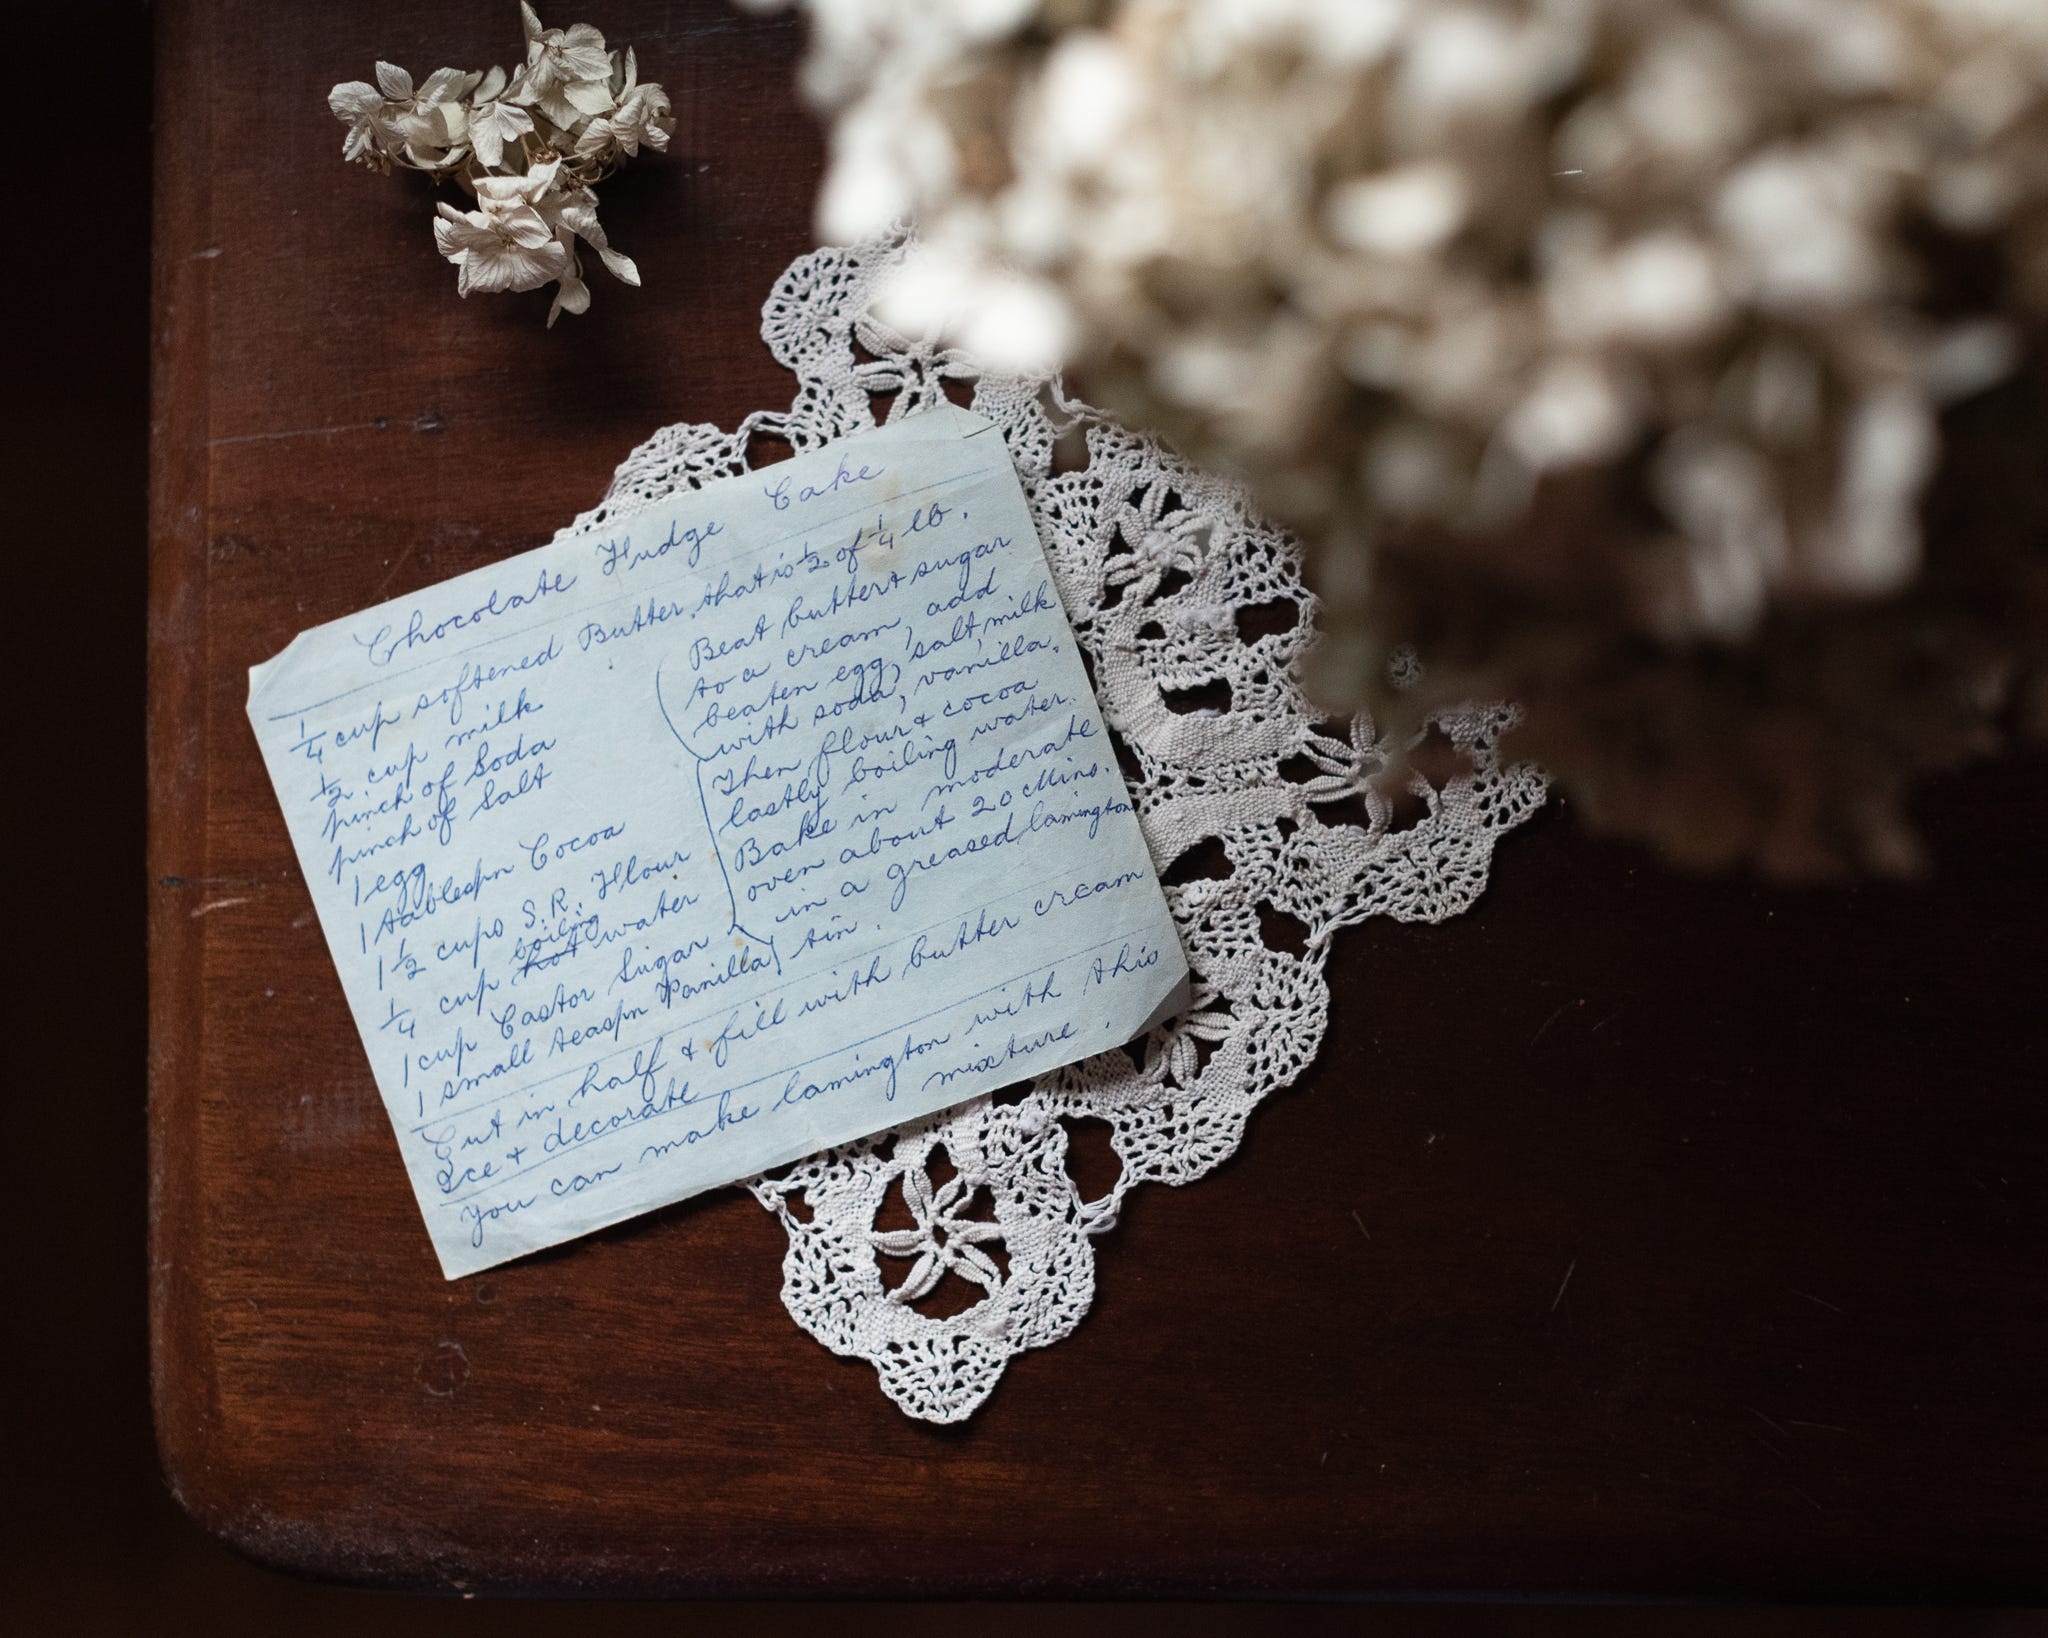 Chocolate Fudge Cake
1/4 cup softened Butter, that is 1/2 of 1/4 lb.
1/2 cup milk
pinch of Soda
pinch of Salt
1 egg
1 tablespn Cocoa
1 1/2 cups S.R. Flour
boiling
1/4 cup hot water
1 cup Castor Sugar
1 small teaspn Vanilla
Beat butter & sugar
to a cream, add
beaten egg, salt, milk
with soda, vanilla.
Then flour & cocoa
lastly boiling water.
Bake in moderate
oven about 20 Mins.
in a greased lamington
tin.
Cut in half & fill with butter cream
Ice & decorate
You can make lamington with this
mixture.